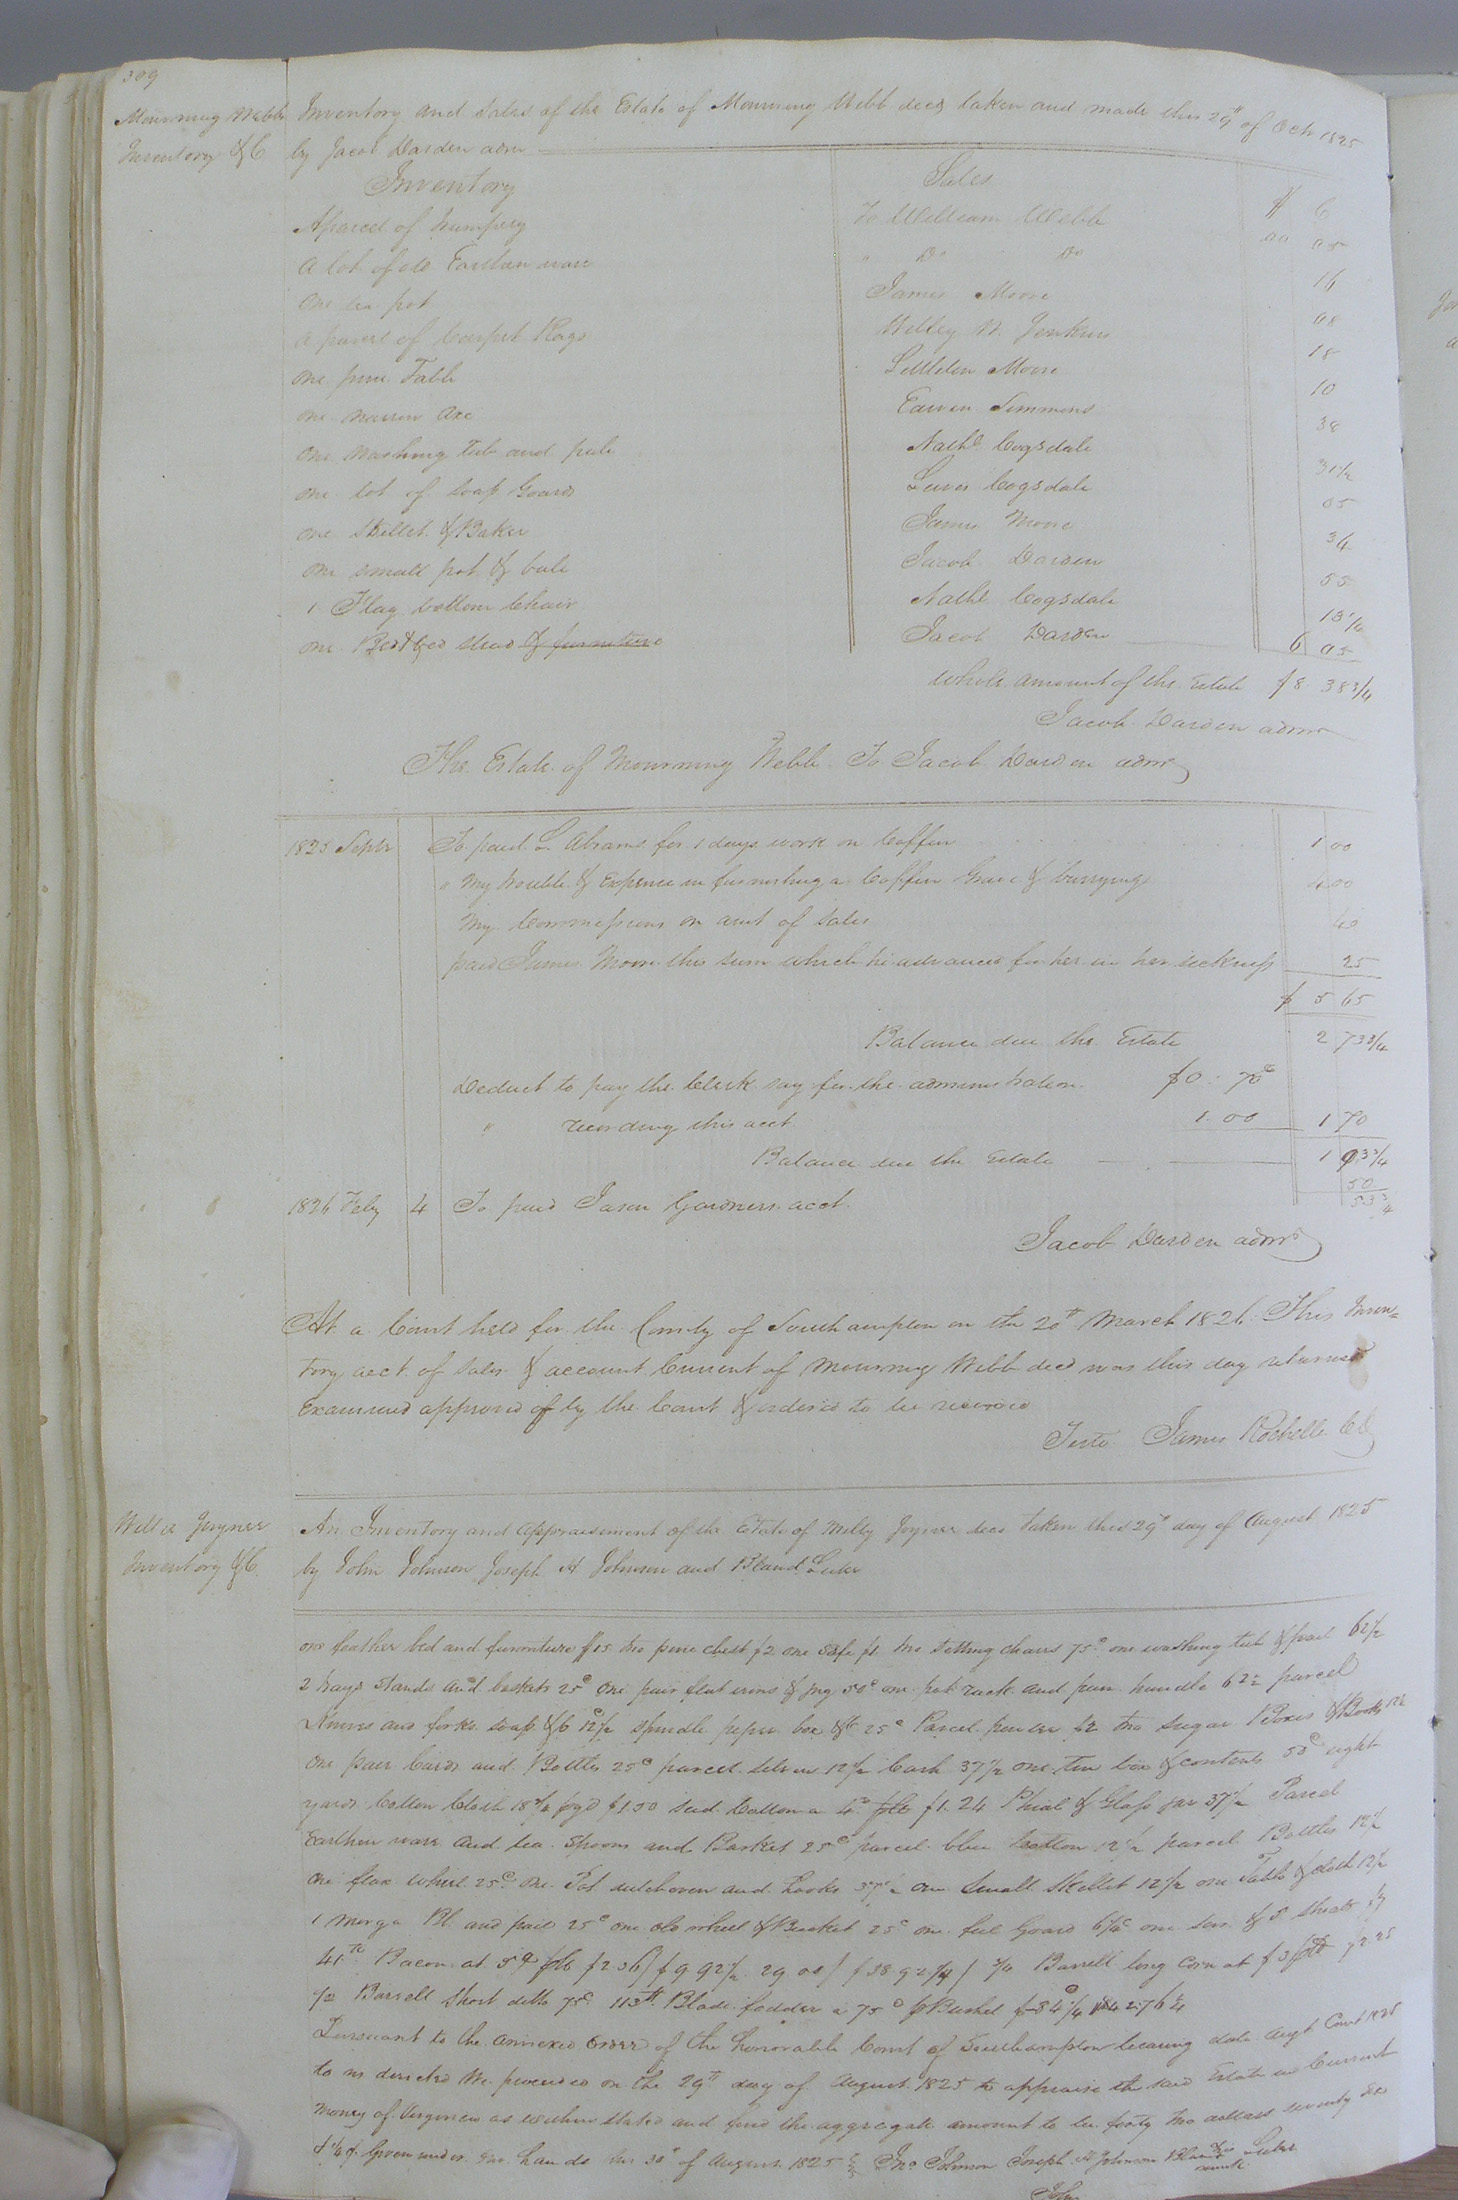 309
Mourning Webb Inventory &C
Inventory and Sales of the Estate of Mourning Webb decd taken and made this 29th of Octr 1825
by Jacob Darden admr
Inventory Sales $ C
A parcel of Trumpery To William Webb 00 05
A lot of old Earthen ware " Do Do 16
One tea pot James Moore 08
a parcel of Carpet Rags Willey W. Jenkins 18
one pine Table Littleton Moore 10
one narrow Axe Edwin Simmons 38
one washing tub and pale Nathl Cogsdale 31 1/2
one lot of Soap Gourds Lewis Cogsdale 05
one Skillet & Baker James Moore 34
one small pot & bale Jacob Darden 55
1 Flag bottom Chair Nathl Cogsdale 18 1/4
one Bed & Bed stead & furniture Jacob Darden 6 05
Whole amount of the Estate $8 38 3/4
Jacob Darden admr
The Estate of Mourning Webb To Jacob Darden admr
1825 Septr To paid L. Abrams for 1 days work on Coffin 1 00
" My trouble & Expence in furnishing a Coffin Grave & burrying 4 00
My Commissions on amt of Sales 40
paid James Moore this sum which he advanced for her in her sickness 25
$ 5 65
Balance due the Estate 2 73 3/4
Deduct to pay the Clerk say for the administration $0: 70c
" recording this acct 1.00 1 70
Balance due the Estate 1 03 3/4
50
1826 Feby 4 To paid Jason Gardners acct 53 3/4
Jacob Darden admr
At a Court held for the County of Southampton on the 20th March 1826 This Inven=
tory acct of Sales & account Current of Mourning Webb decd was this day returned
Examined approved of by the Court & ordered to be recorded
Teste James Rochelle CC
Milly Joyner
Inventory &C.
An Inventory and Appraisement of the Estate of Milly Joyner decd taken this 29th day of August 1825
by John Johnson Joseph H Johnson and Bland Luke
one feather bed and furnniture $15 two pine chest $2 one Safe $1 two Setting chairs 75c one washing tub & pail 62 1/2
2 trays Stands and baskets 25c One pair flat irons & jug 50c one pot rack and pan handle 62 1/2 parcel
Knives and forks soap &c 12 1/2 spindle peper box &c 25c Parcel pewter $2 two Sugar Boxes & Books 12 1/2
One pair Cards and Bottles 25c parcel 12 1/2 Cash 37 1/2 one tin box & contents 50c eight
yards Cotton Cloth 18 3/4 pyd $1.50 seed Cotton a 4c $1.24 Phial & Glass jar 37 1/2 Parcel
Earthen ware and tea Spoons and Basket 25c parcel blue Cotton 12 1/2 parcel Bottles 12 1/2
one flax wheel 25c One Pot dutch oven and hooks 37 1/2 one Small Skellet 12 1/2 one Table & cloth 12 1/2
1 Bl. and pail 25c one old wheel & Bucket 25c one Gourd 6 1/4c one Sow & 5 Shoats
41 lb Bacon at $2.06 $9 92 1/2 Barrell long Corn at $3
1/2 Barrell Short ditto 75c 113 lb Blade fodder a 75c
Pursuant to the annexed Order of the honorable Court of Southampton bearing date Augt Court 1825
to us directed We proceeded on the 29th day of August 1825 to appraise the said Estate in Current
Money of Virginia as within stated and find the aggregate amount to be forty two dollars seventy six
& 1/4 c. Given under our hands this 30th of August 1825 Jno Johnson Joseph H Johnson Bland his mark Luke
John